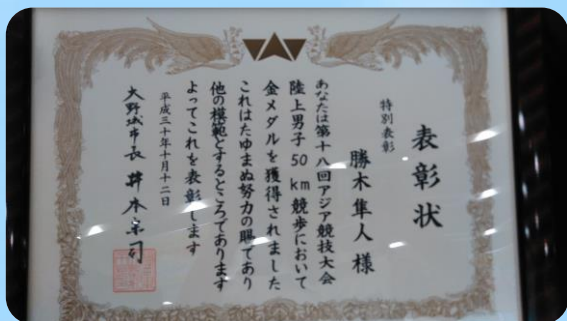 表彰状
特別表彰
勝木隼人様
あなたは第十八回アジア競技大会
陸上男子50km競歩において
金メダルを獲得されました
これはたゆまぬ努力の賜であり
他の模範とするところであります
よってこれを表彰します
平成三十年十月十二日
大野城市長 井本宗司